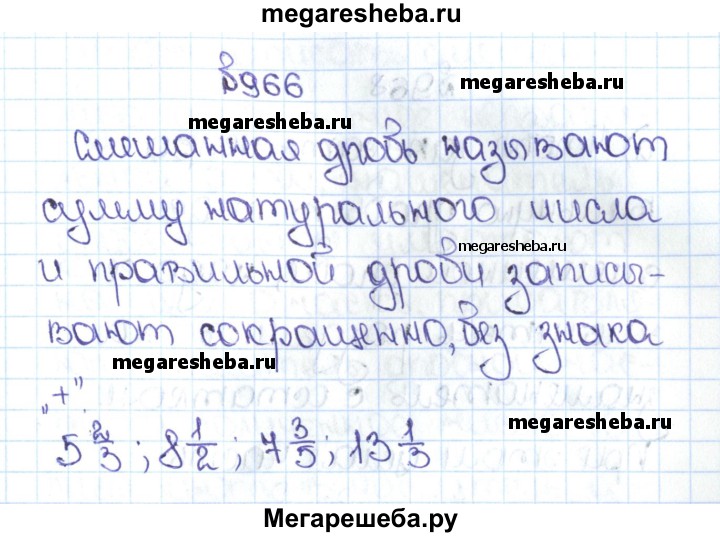 megaresheba.ru
№966
megaresheba.ru
megaresheba.ru
Смешанная дробь называют
сумму натурального числа
megaresheba.ru
и правильной дроби записы-
вают сокращенно, без знака
megaresheba.ru
„+”.
megaresheba.ru
5 2/3 ; 8 1/2 ; 7 3/5 ; 13 1/3
Мегарешеба.ру